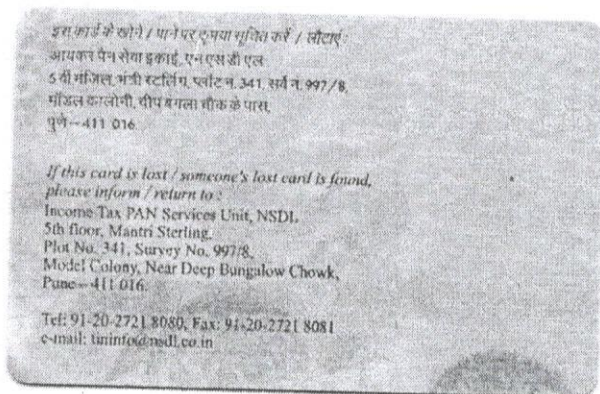 इस कार्ड के खोने / पाने पर कृपया सूचित करें / लौटाएं :
आयकर पैन सेवा इकाई, एन एस डी एल
5 वी मंजिल, मंत्री स्टर्लिंग, प्लॉट न. 341, सर्वे न. 997/8,
मॉडल कालोनी, दीप बंगला चौक के पास,
पुणे – 411 016.
If this card is lost / someone's lost card is found,
please inform / return to :
Income Tax PAN Services Unit, NSDL
5th floor, Mantri Sterling,
Plot No. 341, Survey No. 997/8,
Model Colony, Near Deep Bungalow Chowk,
Pune – 411 016.
Tel: 91-20-2721 8080, Fax: 91-20-2721 8081
e-mail: tininfo@nsdl.co.in